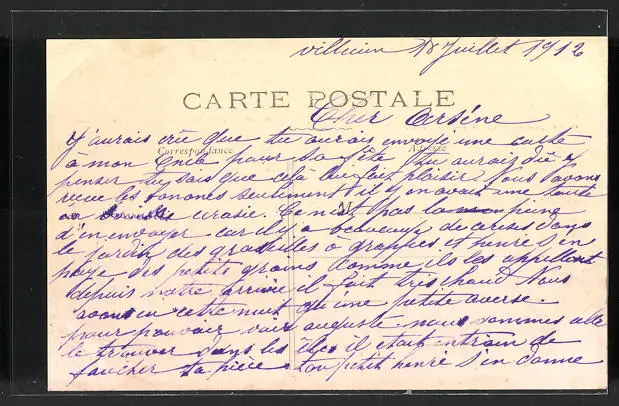 18 Juillet 1912
CARTE POSTALE
Cher Arsène
J'aurais crue que tu aurais envoyé une carte
Correspondance
Adresse
à mon Oncle pour sa fête tu aurais dû y
penser tu sais que celà lui fait plaisir. Nous avons
les bananes seulement il y en avait une toute
écrasée. Ce n'est pas la peine
M
d'en envoyer car il y a beaucoup de cerises dans
le jardin des groseilles à grappes et henré s'en
paye des petits grains comme ils les appellent
depuis notre arrivée il fait très chaud Nous
avons eu cette nuit qu'une petite averse.
pour pouvoir voir auguste nous sommes allé
le trouver dans les il était entrain de
faucher sa pièce ton petit henré s'en donne